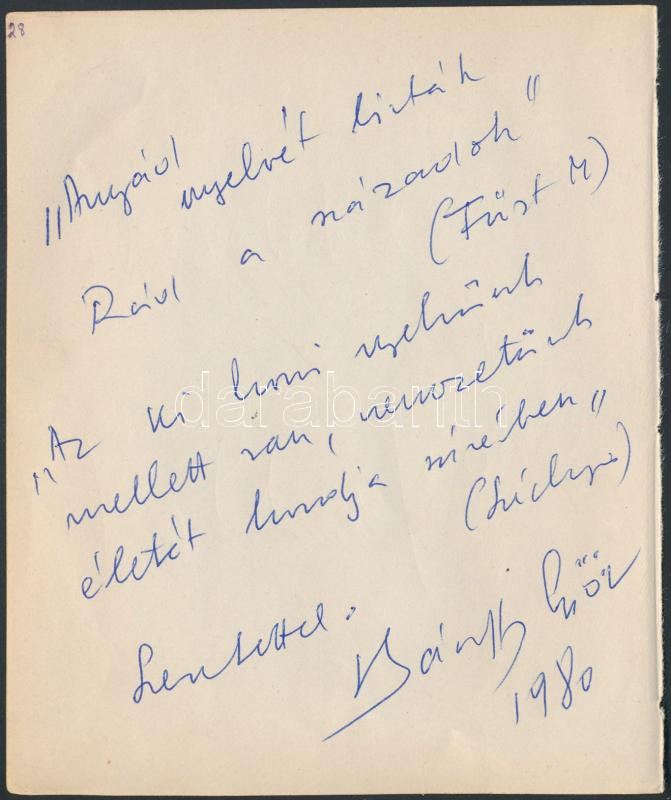 28
„Anyád nyelvét bízták
Rád a századok"
(Füst M)
„Az ki honi nyelvünk
mellett van, nemzetünk
életét hordja szívében"
(Széchenyi)
Szeretettel.
Bánffy György
1980
darabanth